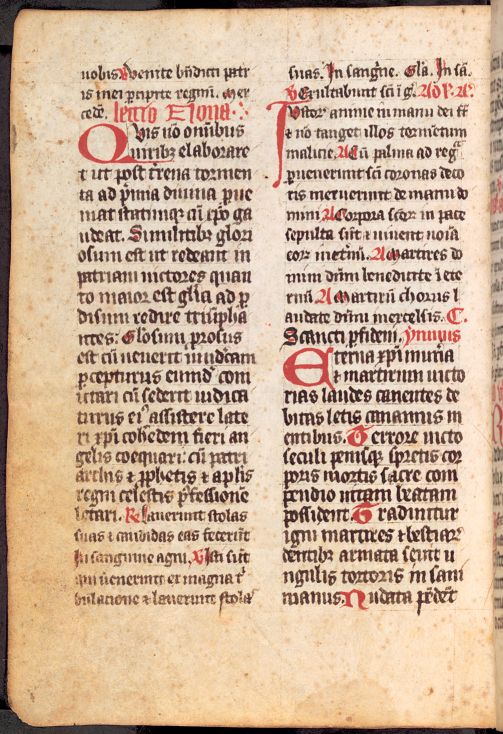 uobis. V Uenite bñdicti patr
is mei ꝑcipite regnũ. Mer
cedẽ. lectio Nona
Quis nõ omibus
uiribꝫ elaborare
t ut post trẽna tormen
ta ad p̃mia diuina ꝑue
niat statimqꝫ cũ xp̃o ga
udeat. Similitibꝫ glori
osum est ut redeant in
patriam uictores quan
to maior est gl̃ia ad ꝑ
disum redire triũpha
ntes. Glosum prosus
est cũ uenerit iudicam
ꝑcepturus eumdẽ com
itari cũ sederit iudica
turus ei assistere late
ri xp̃i coh̃edem fieri an
gelis coequari: cũ patri
archis ⁊ ꝓphetis ⁊ ap̃lis
regni celestis p̃fessione
letari. R̃ Lauerunt stolas
suas ⁊ candidas eas fecerũt
In sanguine agni. V Isti sũt
qui uenerunt ex magna t̃
bulacione ⁊ lauerunt stolas
suas. In sang̃ne. Gl̃a. In sã.
V Exultabunt sc̃i ĩ g̃. Ad
Iustor anime in manu dei st̃
⁊ nõ tanget illos tormẽtum
malicie. A Cũ palma ad reg̃
ꝑuenerunt sc̃i coronas deco
ris meruerunt de manu do
mini. A Corpora sc̃or in pace
sepulta sũt ⁊ uiuent noĩa
eor in et̃nũ. A Martires do
mini dñm benedicite ĩ ete
rnũ. A Martirũ chorus l
audate dñm in excelsis. C.
Sancti ꝑfidem. Ymnus
Eterna xp̃i munera
et martirum uicto
rias laudes canentes de
bitas letis canamus m
entibus. Terrore uicto
seculi penisqꝫ spretis cor
poris mortis sacre com
pendio uitam beatam
possident. Traduntur
igni martires ⁊ bestiar
dentibꝫ armata seuit u
ngulis tortoris in sani
manus. Nudata pẽdẽt